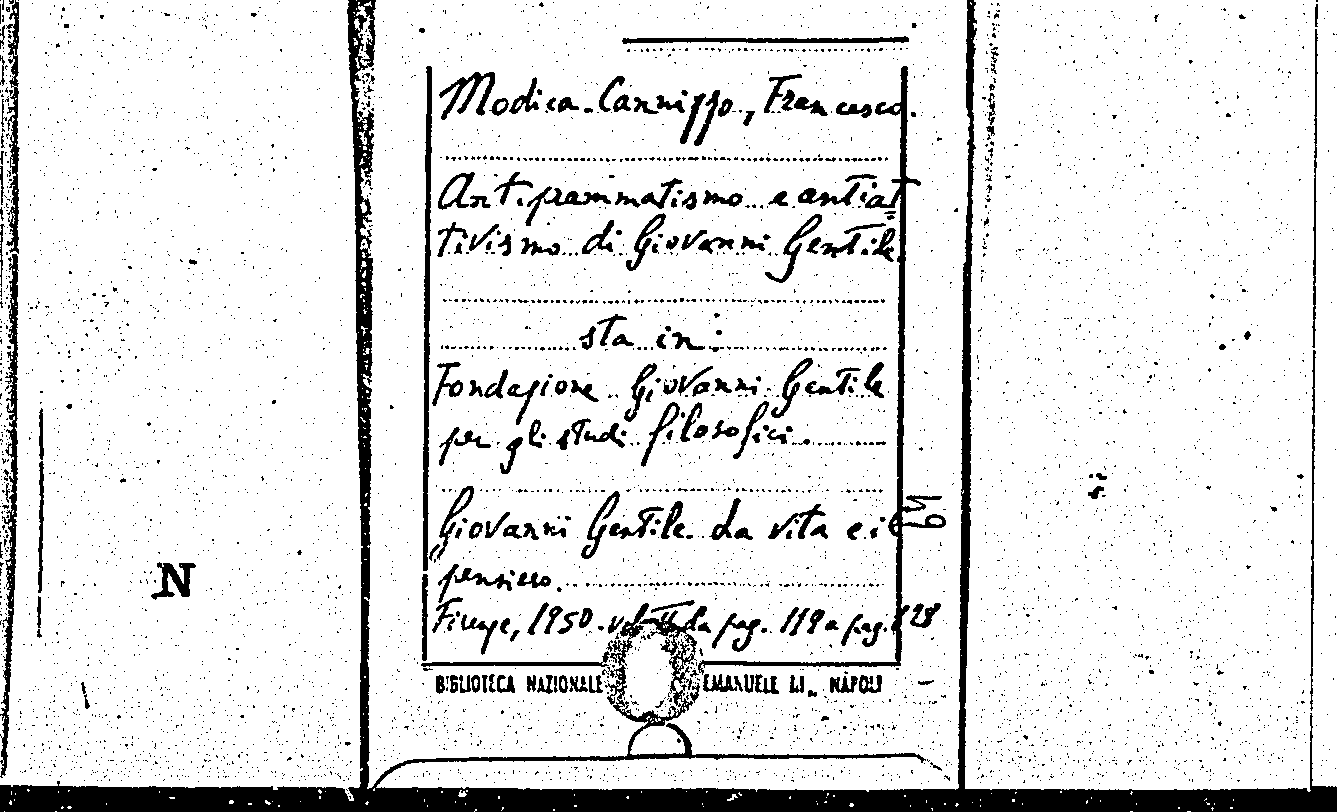 Modica-Cannizzo, Francesco.
Antiprammatismo e antiat=
tivismo di Giovanni Gentile.
sta in:
Fondazione Giovanni Gentile
per gli studi filosofici.
Giovanni Gentile. La vita e il
pensiero.
Firenze, 1950. da pag. 119 a pag. 128
N
BIBLIOTECA NAZIONALE EMANUELE III„ NAPOLI